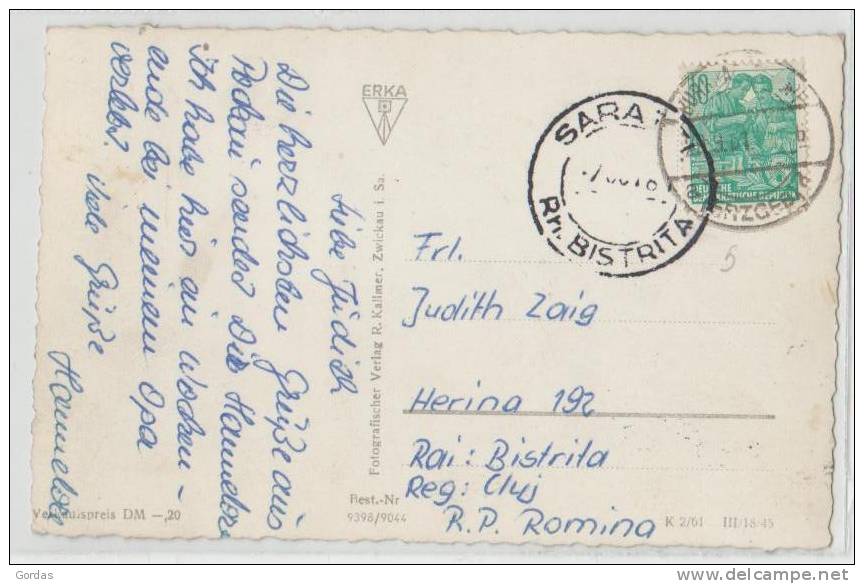 Liebe Judith
Die herzlichsten Grüße aus
sendet Dir Hannelore
Ich habe hier ein Wochen-
ende bei meinem Opa
verlebt. Viele Grüße
Hannelore
ERKA
Fotografischer Verlag R. Kallmer, Zwickau i. Sa.
10
DEUTSCHE
DEMOKRATISCHE REPUBLIK
SARA
Rn. BISTRITA
5
Frl.
Judith Zaig
Herina 192
Rai: Bistrita
Reg: Cluj
R.P. Romina
Verkaufspreis DM —,20
Best.-Nr
9398/9044
K 2/61 III/18/45
Gordas
http://www.delcampe.net